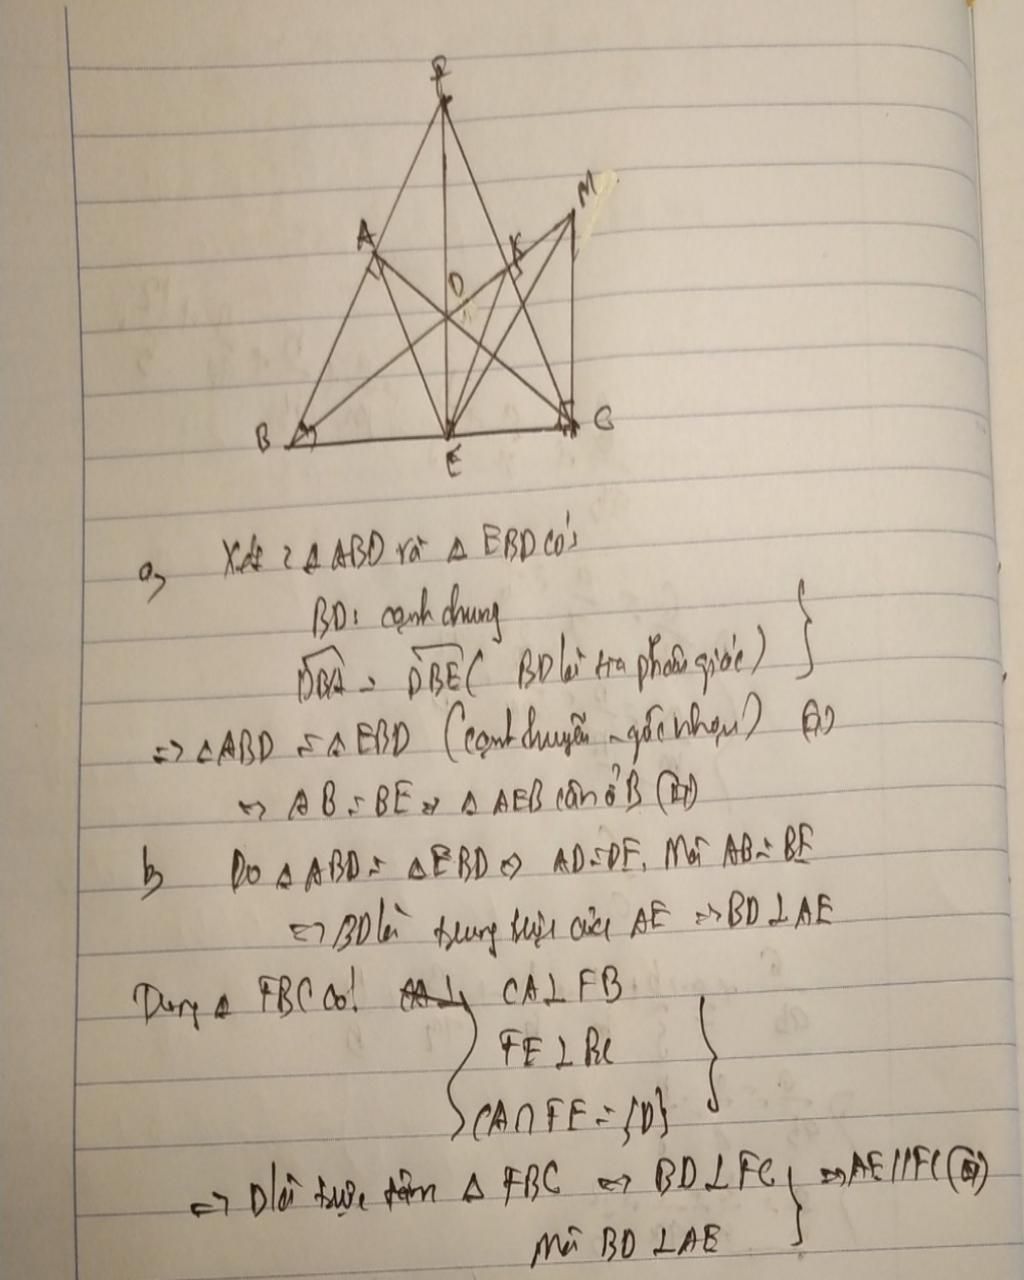 F
M
A
K
D
B
E
C
a, Xét : Δ ABD và Δ EBD có:
BD: cạnh chung
DBA = DBE ( BD là tia phân giác) }
=> Δ ABD = Δ EBD (cạnh huyền - góc nhọn) (1)
=> AB = BE => Δ AEB cân ở B
b, Do Δ ABD = Δ EBD => AD = DE. Mà AB = BE
=> BD là trung trực của AE => BD ⊥ AE
Δ FBC có: CA ⊥ FB
FE ⊥ BC
CA ∩ FE = {D} }
=> D là trực tâm Δ FBC => BD ⊥ FC } => AE // FC
Mà BD ⊥ AE